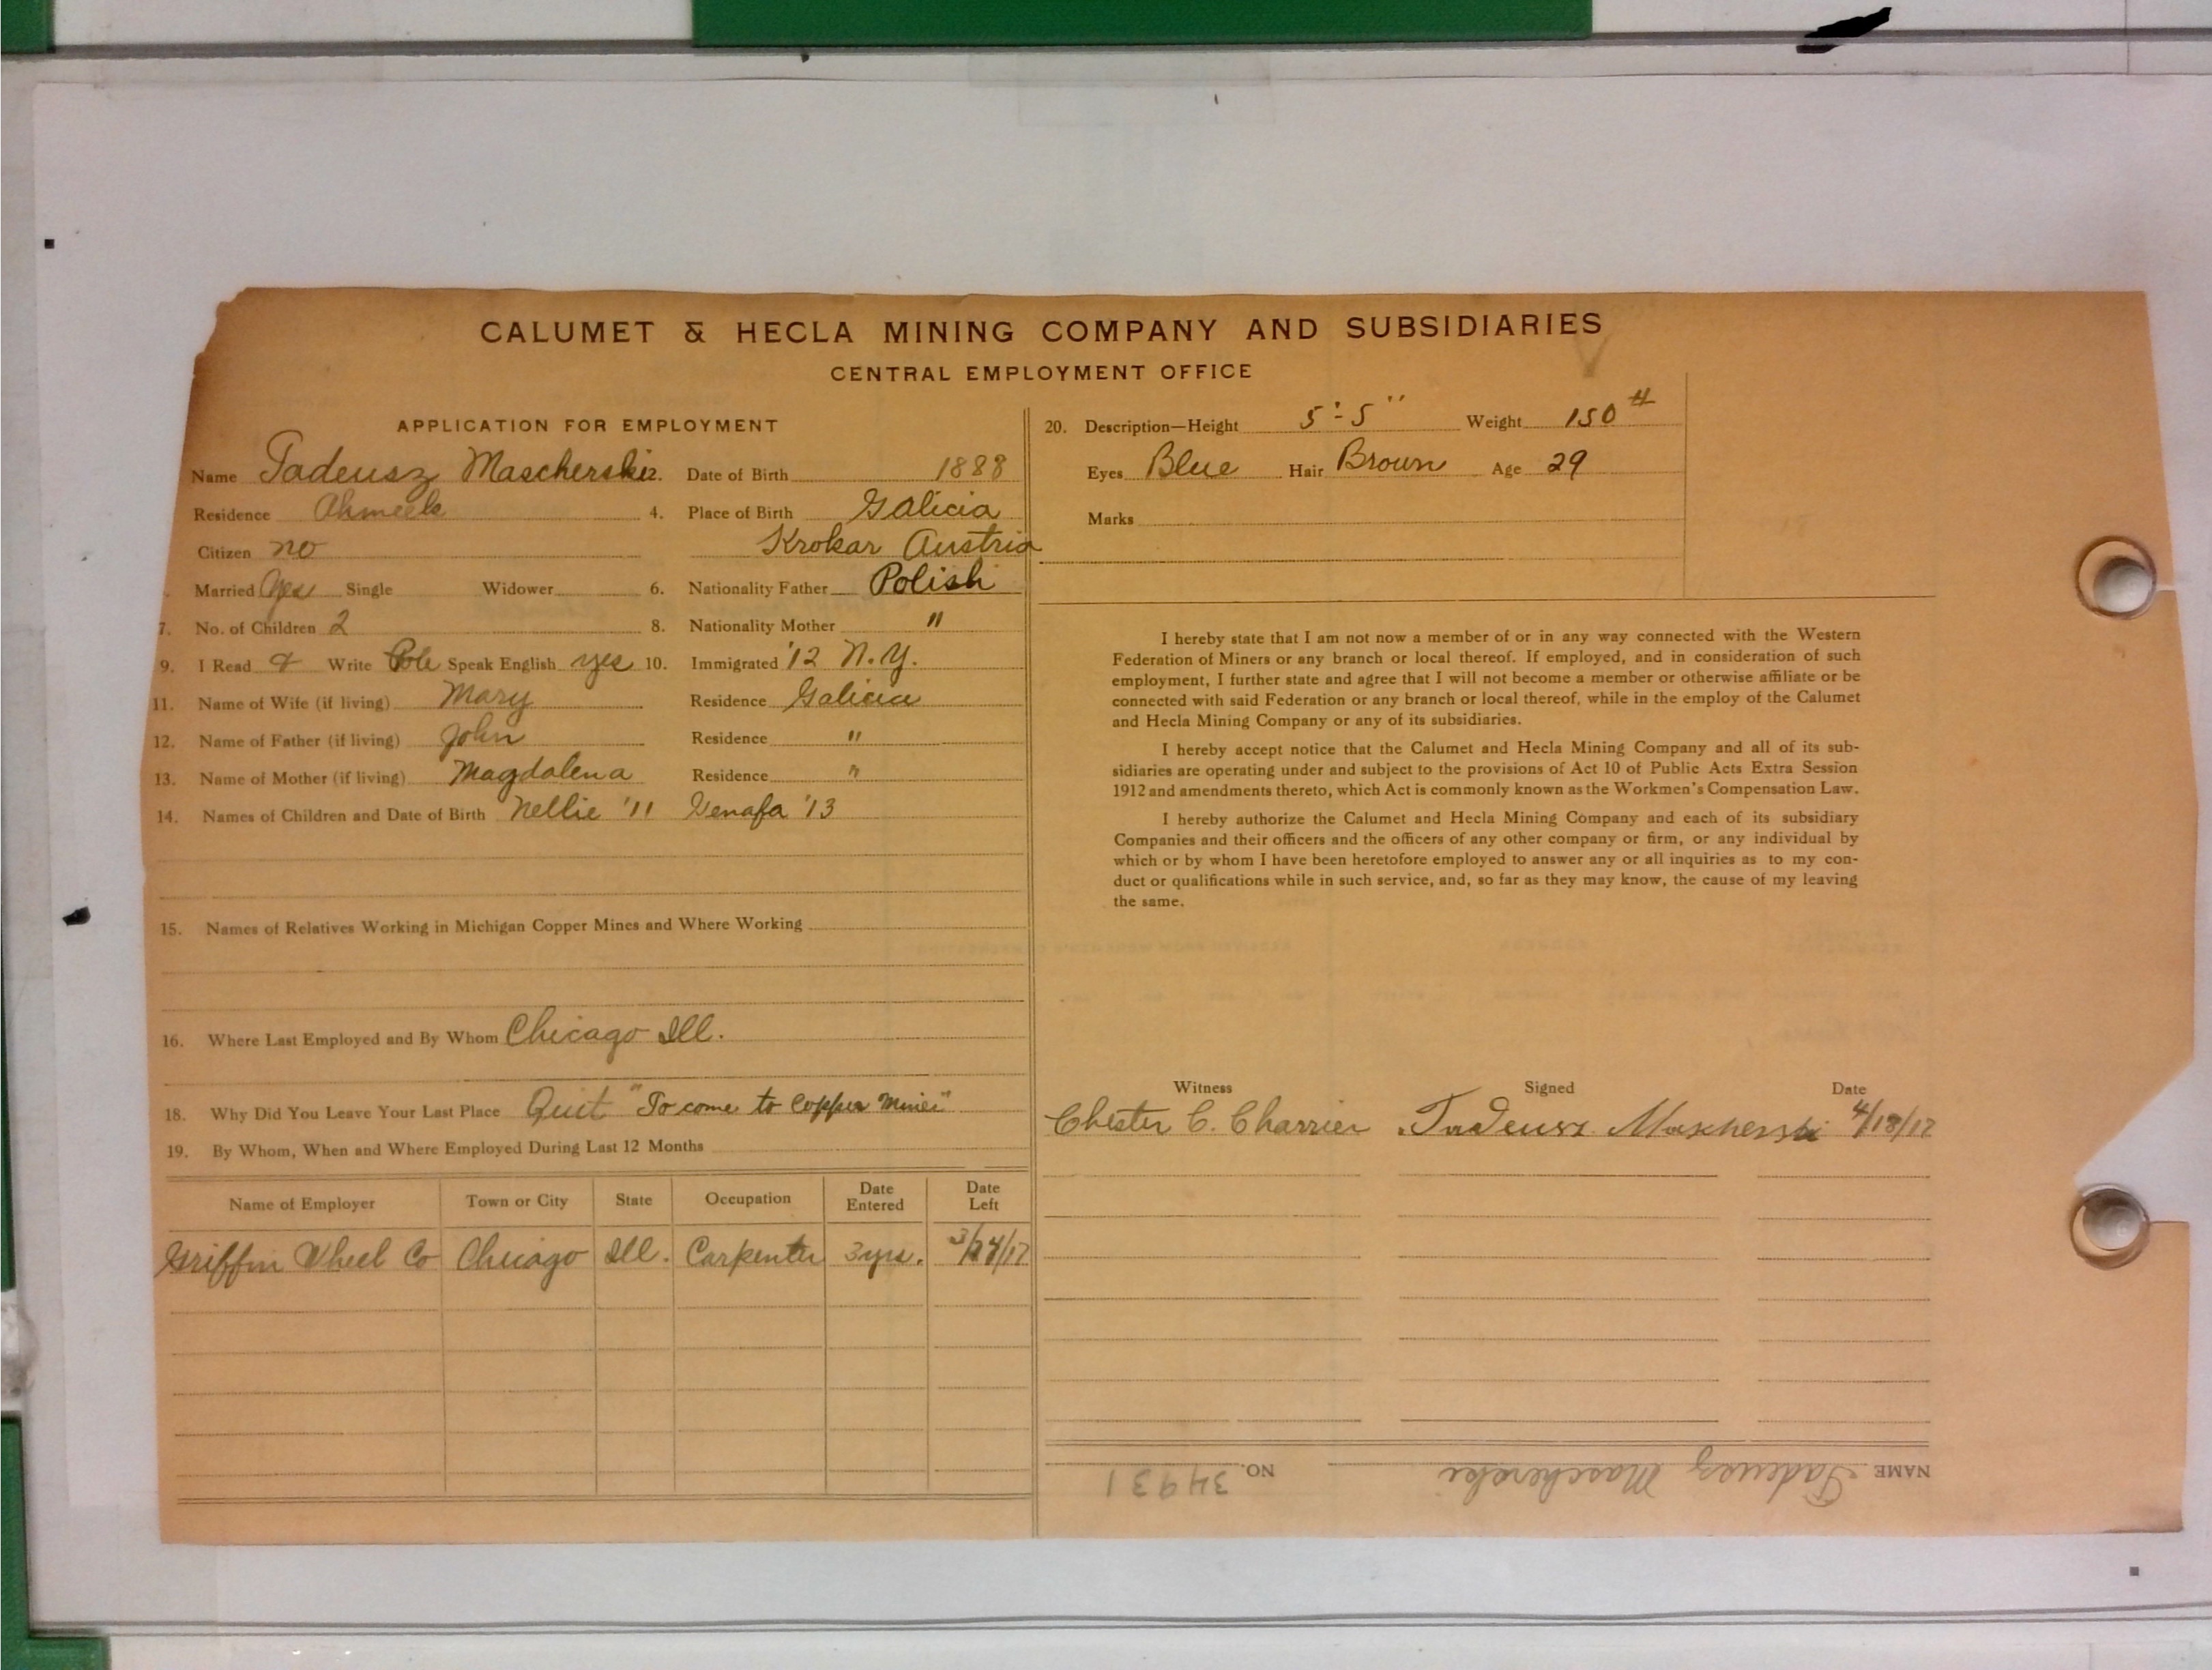 CALUMET & HECLA MINING COMPANY AND SUBSIDIARIES
CENTRAL EMPLOYMENT OFFICE
APPLICATION FOR EMPLOYMENT
Name Tadeusz Mascherski 2. Date of Birth 1888
Residence Ahmeek 4. Place of Birth Galicia
Citizen no Krokar Austria
Married Yes Single Widower 6. Nationality Father Polish
7. No. of Children 2 8. Nationality Mother "
9. I Read & Write Pole Speak English yes 10. Immigrated '12 N.Y.
11. Name of Wife (if living) Mary Residence Galicia
12. Name of Father (if living) John Residence "
13. Name of Mother (if living) Magdalena Residence "
14. Names of Children and Date of Birth Nellie '11 Genafa '13
15. Names of Relatives Working in Michigan Copper Mines and Where Working
16. Where Last Employed and By Whom Chicago Ill.
18. Why Did You Leave Your Last Place Quit "To come to Copper Mines"
19. By Whom, When and Where Employed During Last 12 Months
Name of Employer Town or City State Occupation Date Entered Date Left
Griffin Wheel Co Chicago Ill. Carpenter 3 yrs. 3/24/17
20. Description—Height 5'-5" Weight 150#
Eyes Blue Hair Brown Age 29
Marks
I hereby state that I am not now a member of or in any way connected with the Western
Federation of Miners or any branch or local thereof. If employed, and in consideration of such
employment, I further state and agree that I will not become a member or otherwise affiliate or be
connected with said Federation or any branch or local thereof, while in the employ of the Calumet
and Hecla Mining Company or any of its subsidiaries.
I hereby accept notice that the Calumet and Hecla Mining Company and all of its sub-
sidiaries are operating under and subject to the provisions of Act 10 of Public Acts Extra Session
1912 and amendments thereto, which Act is commonly known as the Workmen's Compensation Law.
I hereby authorize the Calumet and Hecla Mining Company and each of its subsidiary
Companies and their officers and the officers of any other company or firm, or any individual by
which or by whom I have been heretofore employed to answer any or all inquiries as to my con-
duct or qualifications while in such service, and, so far as they may know, the cause of my leaving
the same.
Witness Signed Date
Chester C. Charrier Tadeusz Mascherski 4/18/17
NAME Tadeusz Mascherski NO. 34931